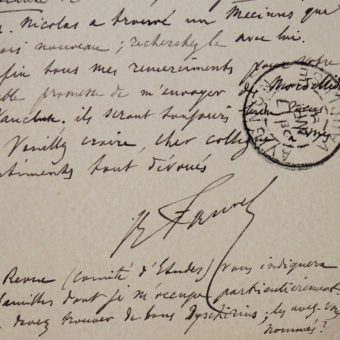 Nicolas a trouvé un Mecinus que
nouveau ; recherchez le avec lui.
fin tous mes remerciments pour votre
promesse de m'envoyer des Mordellides
Vaucluse. ils seront toujours
Veuillez croire, cher collègue
timents tout dévoués
Fauvel
Revue (Comité d'Etudes) vous indiquera
familles dont je m'occupe particulièrement.
devez trouver de bons Dyschirius ; les avez-vous
nommés ?